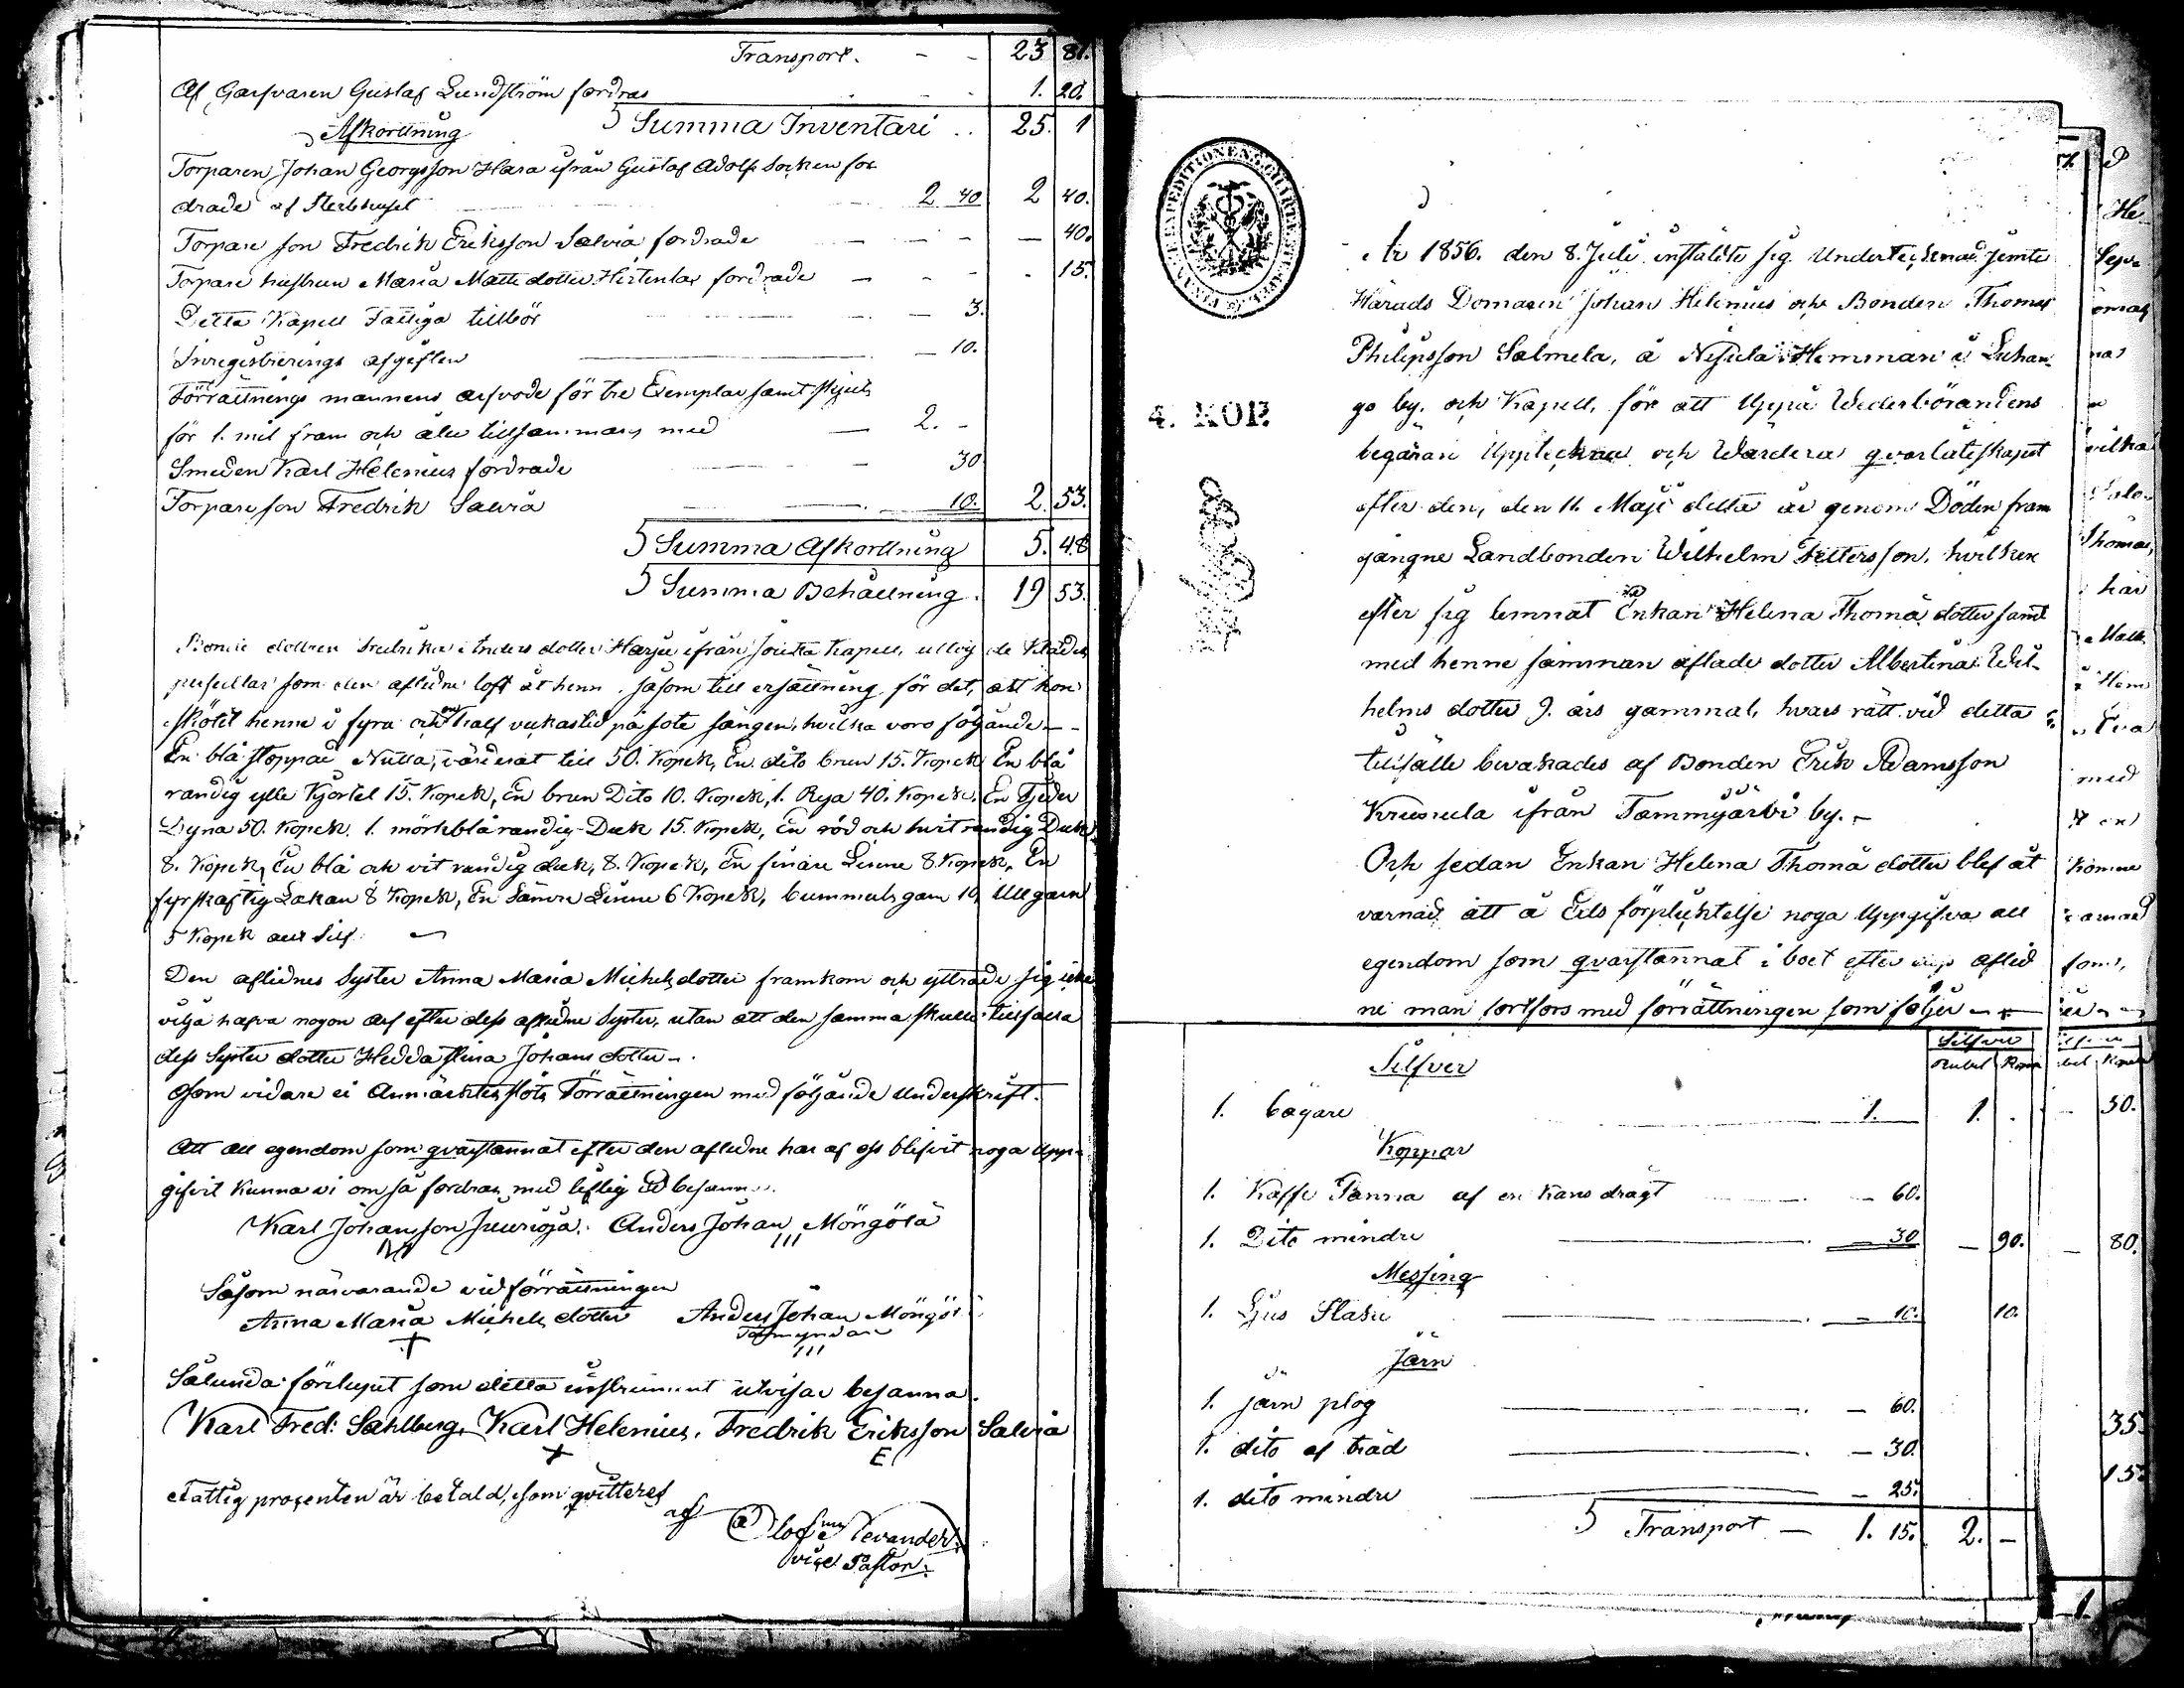 Transport. - - 23 81.
Af Garfvaren Gustaf Lundström fordras - - - 1. 20.
Afkortning Summa Inventari .. 25. 1
Torparen Johan Georgsson Hara ifrån Gustaf Adolfs Socken for
drade af Sterbhuset 2 40 2 40.
Torpare son Fredrik Eriksson Salvia fordrade - - - - 40.
Torpare hustrun Maria Matts dotter Hietenlax fordrade - - - - 15.
Detta Kapell Fattiga tillhör - 3.
Inregistrerings afgiften - 10.
Förrättnings mannens arfvode för tre Exemplar samt skjuts
för 1. mil fram och åter tillsammans med - 2. -
Smeden Karl Helenius fordrade - 30
Torpare son Fredrik Salvia - 10. 2. 53.
Summa Afkortning 5. 48
Summa Behållning. 19 53.
Bonde dottren Fredrika Anders dotter Harju ifrån Joutsa Kapell, uttog de Kläder
persedlar som den aflidne loft åt henne, såsom till ersättning för det, att hon
skötit henne i fyra och en half veckas tid på sote sängen, hvilka voro följande -
En blå stoppad Nutta, värderat till 50. Kopek, En dito brun 15. Kopek En blå
randig ylle Kjortel 15. Kopek, En brun Dito 10. Kopek, 1. Rya 40. Kopek. En Fjeder
Dyna 50. Kopek. 1. mörkblå randig Duk 15. Kopek, En röd och hvit randig Duk
8. Kopek, En blå och vit randig duk, 8. Kopek, En finare Linne 8. Kopek, En
fyrskaftig Lakan 8 Kopek, En Sämre Linne 6 Kopek, bummuls garn 10, Ull garn
5 Kopek allt Silf.
Den aflidnes Syster Anna Maria Michels dotter framkom och yttrade sig icke
vilja hafva nogon arf efter dess aflidne Syster, utan att den samma skulle tillfalla
dess Syster dotter Hedda Stina Johans dotter -.
Som vidare ei Anmärktes, slöts Förrättningen med följande Underskrift.
Att all egendom som qvarstannat efter den aflidne har af oss blifvit noga Upp-
gifvit Kunna vi om så fordras, med liflig Ed besanna.
Karl Johansson Juurioja. Anders Johan Möngölä
III
Såsom närvarande vid förrättningen
Anna Maria Michels dotter Anders Johan Möngölä
+ Förmyndare
III
Sålunda förelupit som detta instrument utvisar besanna.
Karl Fred: Sahlberg, Karl Helenius, Fredrik Eriksson Salvia
+ E
Fattig procenten är betald, som qvitteres
af Olof Levander.
vice Pastor.
FINANCE EXPEDITIONENS CHARTÆ STÄMPEL
4. KOP.
År 1856. den 8. Juli instälte sig Undertecknad jemte
Härads Domaren Johan Helenius och Bonden Thomas
Philipsson Salmela, å Nisula Hemman i Luhan-
go by. och Kapell, för att Uppå Wederbörandens
begäran Uppteckna och Wärdera qvarlåtskapet
efter den, den 11. Maji detta år genom Döden fram
gångne Landbonden Wilhelm Pettersson, hvilken
efter sig lemnat Enkan Helena Thomä dotter samt
med henne samman aflade dotter Albertina Wil-
helms dotter 9. års gammal, hvars rätt vid detta
tillfälle bevakades af Bonden Erik Adamsson
Kruusula ifrån Tammijärvi by. -
Och sedan Enkan Helena Thomä dotter blef åt
varnad att å Eds förpliktelse noga Uppgifva all
egendom som qvarstannat i boet efter aflid
ne man fortfors med förrättningen som följer -
Silfver
Rubel Kopek
Silfver
1. bägare 1. 1. .
Koppar
1. Kaffe Panna af en Kans dragt - 60.
1. Dito mindre - 30 - 90.
Messing
1. Ljus Stake - 10. 10.
Järn
1. järn plog - 60.
1. dito af träd - 30.
1. dito mindre - 25.
Transport - 1. 15. 2. -
omas
vilka
Thomas,
har
Hem
Eva
med
50.
80.
35.
15.
1.